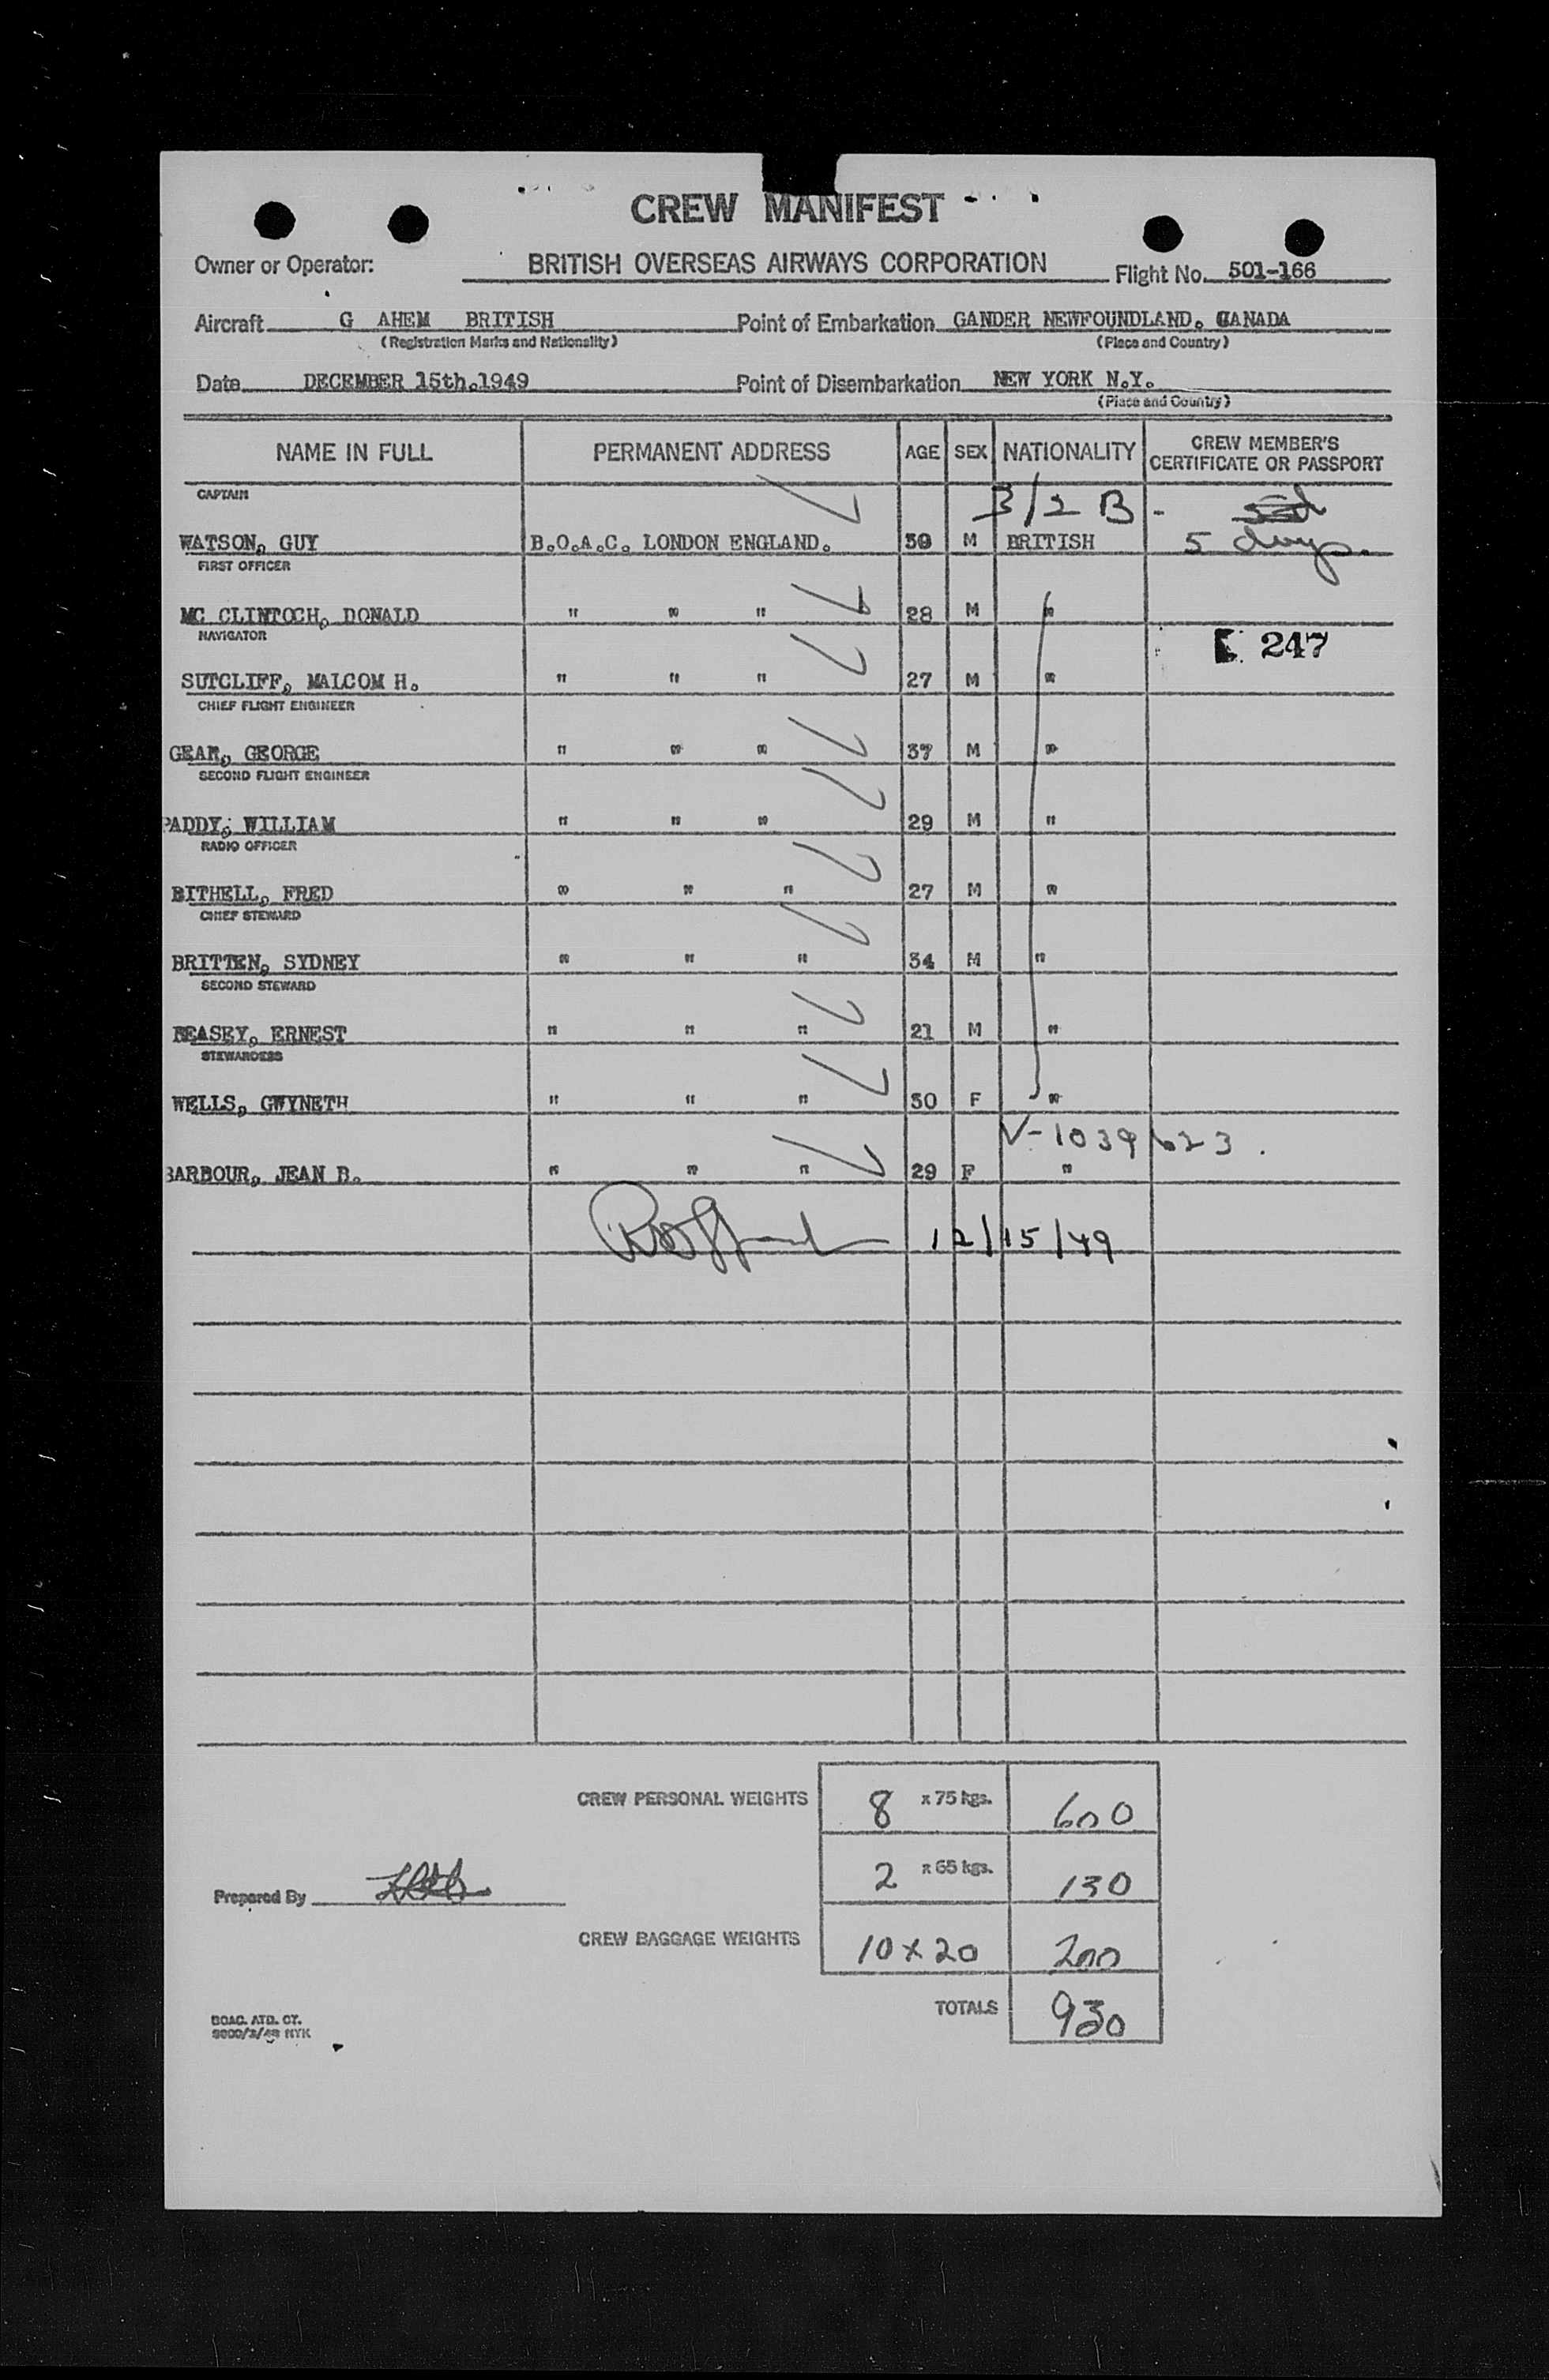 CREW MANIFEST
Owner or Operator: BRITISH OVERSEAS AIRWAYS CORPORATION Flight No. 501-166
Aircraft G AHEM BRITISH Point of Embarkation GANDER NEWFOUNDLAND. CANADA
(Registration Marks and Nationality) (Place and Country)
Date DECEMBER 15th.1949 Point of Disembarkation NEW YORK N.Y.
(Place and Country)
NAME IN FULL PERMANENT ADDRESS AGE SEX NATIONALITY CREW MEMBER'S CERTIFICATE OR PASSPORT
CAPTAIN 3/2 B -
WATSON, GUY B.O.A.C. LONDON ENGLAND. M BRITISH 5 days.
FIRST OFFICER
MC CLINTOCH, DONALD " " " 28 M "
NAVIGATOR 247
SUTCLIFF, MALCOM H. " " " 27 M "
CHIEF FLIGHT ENGINEER
GEAR, GEORGE " " " 37 M "
SECOND FLIGHT ENGINEER
PADDY, WILLIAM " " " 29 M "
RADIO OFFICER
BITHELL, FRED " " " 27 M "
CHIEF STEWARD
BRITTEN, SYDNEY " " " 34 M "
SECOND STEWARD
BEASEY, ERNEST " " " 21 M "
STEWARDESS
WELLS, GWYNETH " " " 30 F "
V-1039623.
BARBOUR, JEAN B. " " " 29 F "
12/15/49
CREW PERSONAL WEIGHTS 8 x 75 kgs. 600
2 x 65 kgs. 130
Prepared By
CREW BAGGAGE WEIGHTS 10 x 20 200
TOTALS 930
BOAC. ATD. CT.
NYK